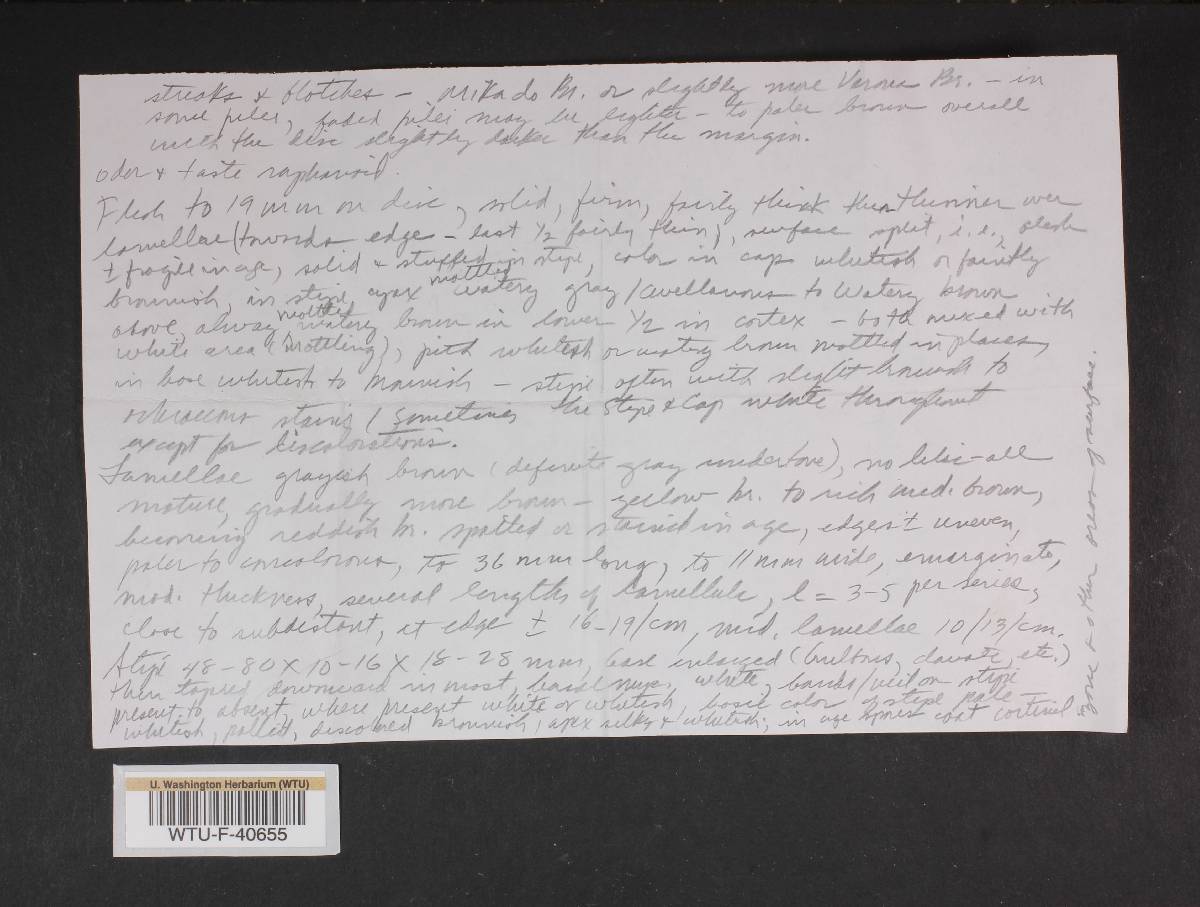 streaks & blotches – Mikado Br. or slightly more Verona Br. – in
some pilei, faded pilei may be lighter – to paler brown overall
with the disc slightly darker than the margin.
odor & taste raphanoid.
Flesh to 19 mm on disc, solid, firm, fairly thick then thinner over
lamellae (towards edge – last 1/2 fairly thin), surface splat, i.e., flesh
± fragile in age, solid & stuffed in stipe, color in cap whitish or faintly
brownish, in stipe apex mottled watery gray / avellaneous to watery brown
above, always mottled watery brown in lower 1/2 in cortex – both mixed with
white area (mottling), pith whitish or watery brown mottled in places,
in base whitish to brownish – stipe often with slight brownish to
ochraceous stains / Sometimes the stipe & cap white throughout
except for discolorations.
Lamellae grayish brown (definite gray undertone), no lilac – all
mature, gradually more brown – yellow br. to rich med. brown,
becoming reddish br. spotted or stained in age, edges ± uneven,
paler to concolorous, to 36 mm long, to 11 mm wide, emarginate,
mod. thickness, several lengths of lamellule, l = 3-5 per series,
close to subdistant, at edge ± 16-19/cm, mid. lamellae 10/13/cm.
Stipe 48-80 x 10-16 x 18-28 mm, base enlarged (bulbous, clavate, etc.)
then tapered downward in most, basal myc. white, bands/veil on stipe
present to absent, where present white or whitish, basic color of stipe pale
whitish, pallid, discolored brownish, apex silky & whitish; in age spores coat cortinal
zone & other areas of surface.
U. Washington Herbarium (WTU)
WTU-F-40655